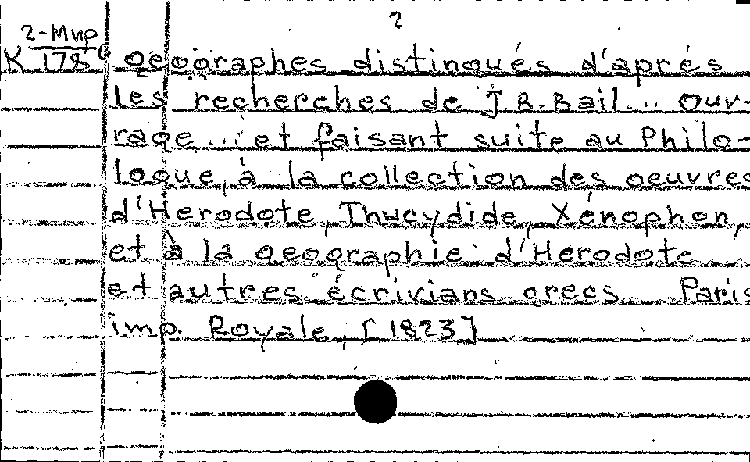 2
2-Мир
K 178 geographes distingués d'aprés
les recherches de J.B. Bail... Ouv-
rage... et faisant suite au Philo-
logue, à la collection des oeuvres
d'Herodote, Thucydide, Xénophon,
et à la geographie d'Herodote
et autres écrivians grecs. Paris
imp. Royale, [1823]